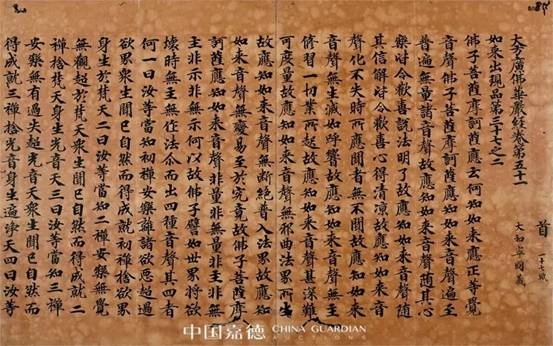 首
大和寧國藏
大方廣佛華嚴經卷第五十一
如來出現品第三十七之二
佛子菩薩摩訶薩應云何知如來應正等覺
音聲佛子菩薩摩訶薩應知如來音聲遍至
普遍無量諸音聲故應知如來音聲隨其心
樂皆令歡喜說法明了故應知如來音聲隨
其信解皆令歡喜心得清涼故應知如來音
聲化不失時所應聞者無不聞故應知如來
音聲無生滅如呼響故應知如來音聲無主
修習一切業所起故應知如來音聲甚深難
可度量故應知如來音聲無邪曲法界所生
故應知如來音聲無斷絕普入法界故應知
如來音聲無變易至於究竟故佛子菩薩摩
訶薩應知如來音聲非量非無量非主非無
主非示非無示何以故佛子譬如世界將欲
壞時無主無作法尒而出四種音聲其四者
何一曰汝等當知初禪安樂離諸欲惡超過
欲界衆生聞已自然而得成就初禪捨欲界
身生於梵天二曰汝等當知二禪安樂無覺
無觀超於梵天衆生聞已自然而得成就二
禪捨梵天身生光音天三曰汝等當知三禪
安樂無有過失超光音天衆生聞已自然而
得成就三禪捨光音身生遍淨天四曰汝等
中国嘉德 CHINA GUARDIAN
AUCTIONS